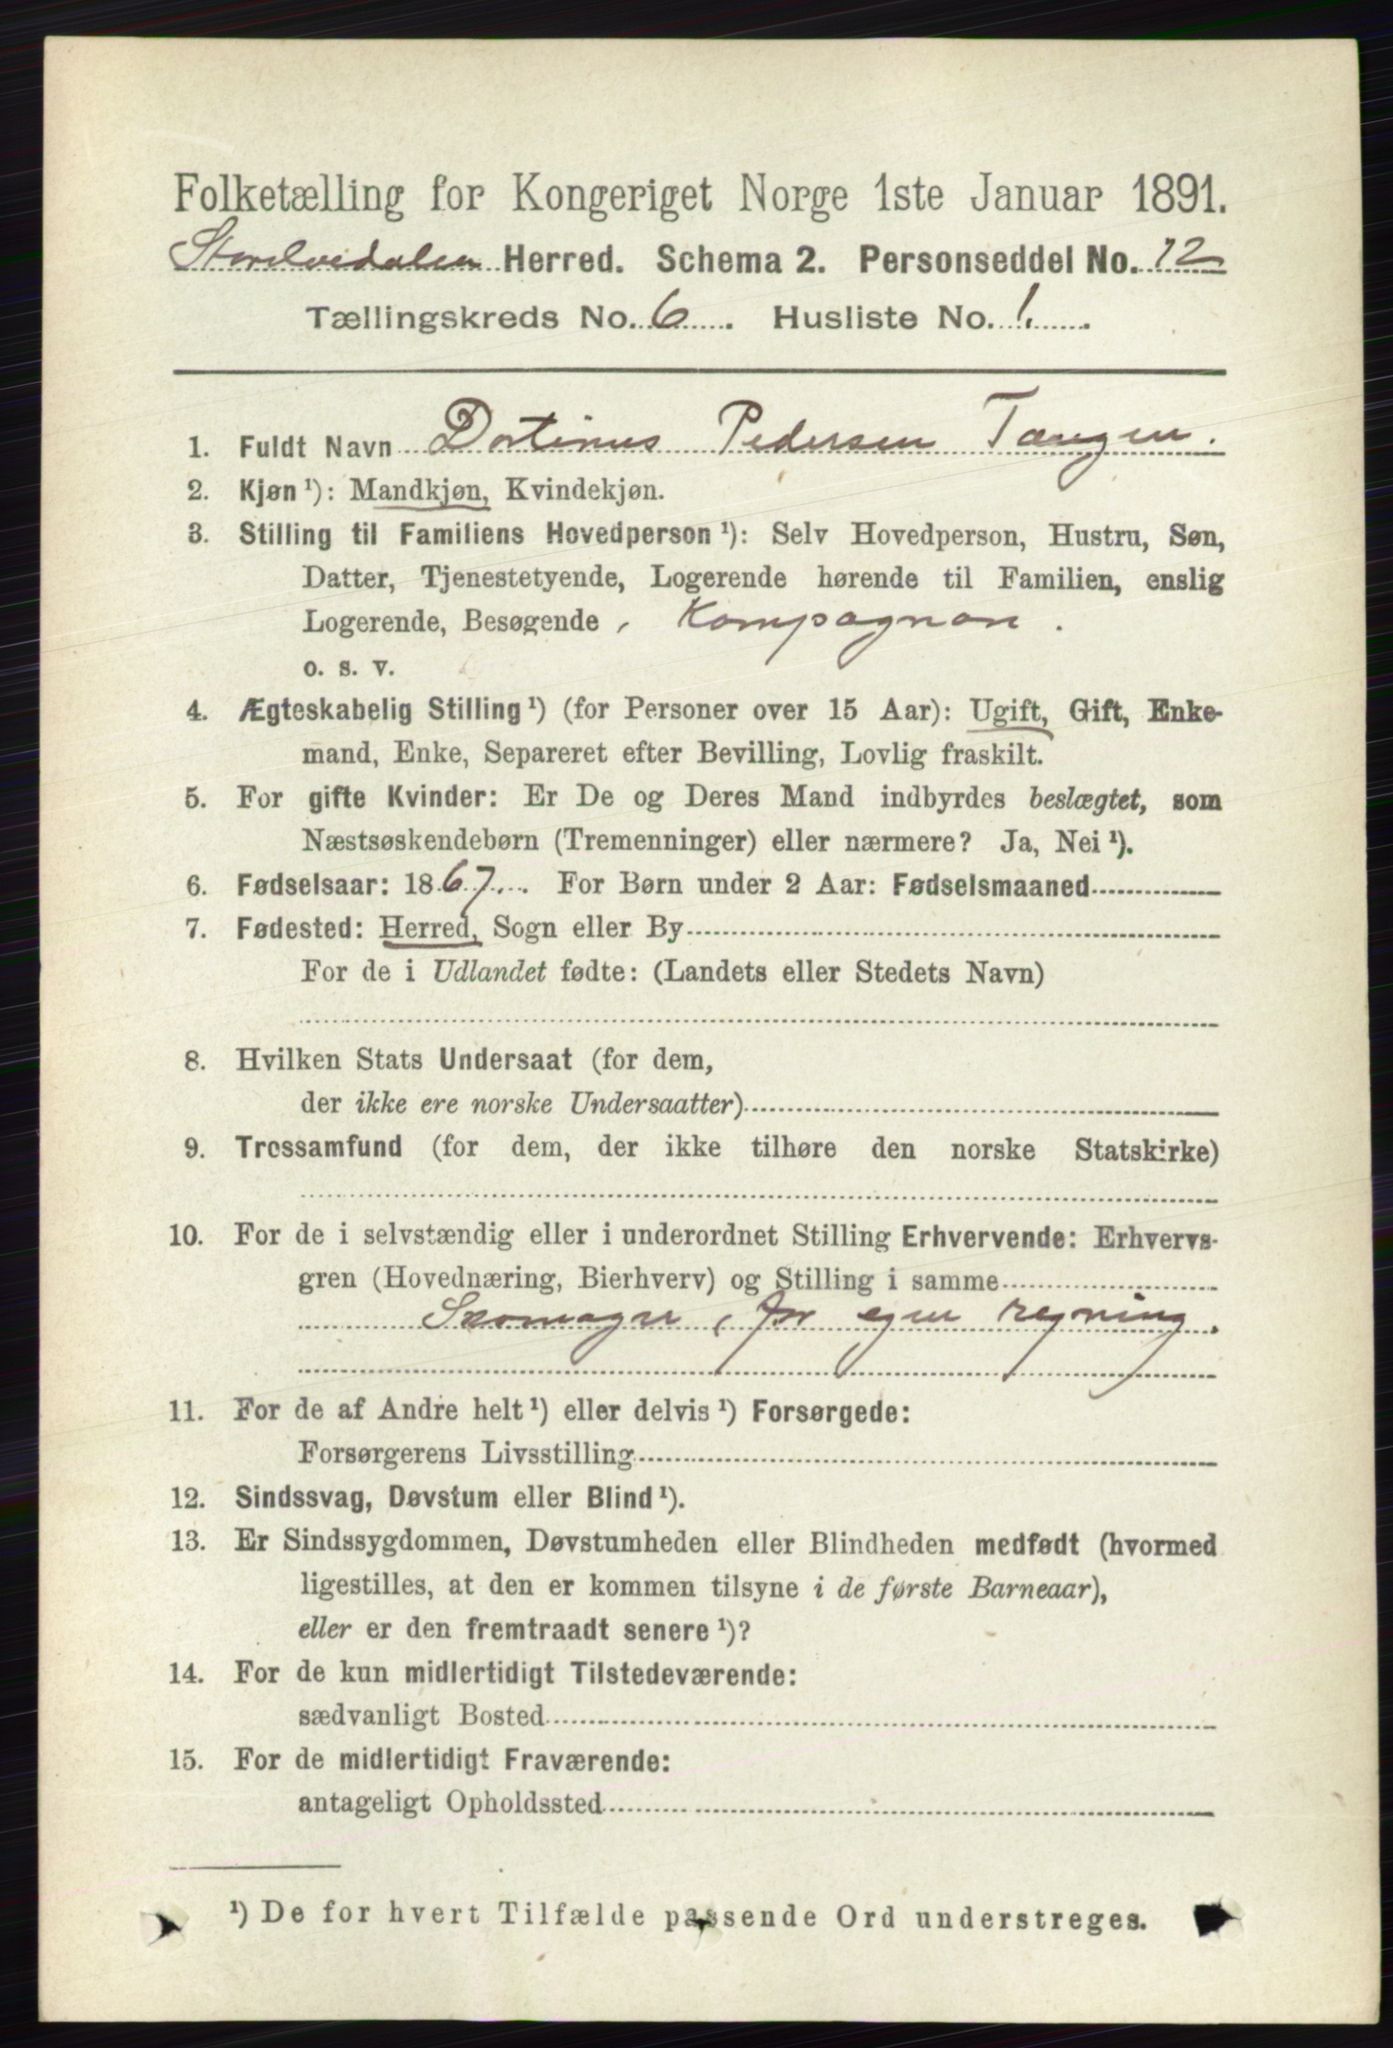 Folketælling for Kongeriget Norge 1ste Januar 1891.
Storelvedalen Herred. Schema 2. Personseddel No. 12
Tællingskreds No. 6. Husliste No. 1.
1. Fuldt Navn Dortinus Pedersen Tangen.
2. Kjøn ¹): Mandkjøn, Kvindekjøn.
3. Stilling til Familiens Hovedperson ¹): Selv Hovedperson, Hustru, Søn,
Datter, Tjenestetyende, Logerende hørende til Familien, enslig
Logerende, Besøgende, Kompagnon.
o. s. v.
4. Ægteskabelig Stilling ¹) (for Personer over 15 Aar): Ugift, Gift, Enke-
mand, Enke, Separeret efter Bevilling, Lovlig fraskilt.
5. For gifte Kvinder: Er De og Deres Mand indbyrdes beslægtet, som
Næstsøskendebørn (Tremenninger) eller nærmere? Ja, Nei ¹).
6. Fødselsaar: 1867. For Børn under 2 Aar: Fødselsmaaned
7. Fødested: Herred, Sogn eller By
For de i Udlandet fødte: (Landets eller Stedets Navn)
8. Hvilken Stats Undersaat (for dem,
der ikke ere norske Undersaatter)
9. Trossamfund (for dem, der ikke tilhøre den norske Statskirke)
10. For de i selvstændig eller i underordnet Stilling Erhvervende: Erhvervs-
gren (Hovednæring, Bierhverv) og Stilling i samme
Skomager, for egen regning.
11. For de af Andre helt ¹) eller delvis ¹) Forsørgede:
Forsørgerens Livsstilling
12. Sindssvag, Døvstum eller Blind ¹).
13. Er Sindssygdommen, Døvstumheden eller Blindheden medfødt (hvormed
ligestilles, at den er kommen tilsyne i de første Barneaar),
eller er den fremtraadt senere ¹)?
14. For de kun midlertidigt Tilstedeværende:
sædvanligt Bosted
15. For de midlertidigt Fraværende:
antageligt Opholdssted
¹) De for hvert Tilfælde passende Ord understreges.